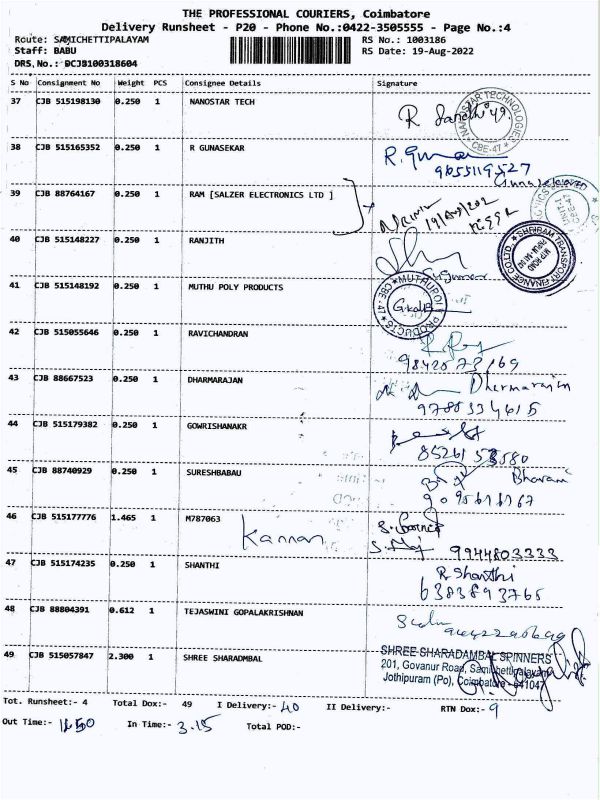 THE PROFESSIONAL COURIERS, Coimbatore
Delivery Runsheet - P20 - Phone No.:0422-3505555 - Page No.:4
Route: SAMICHETTIPALAYAM RS No.: 1003186
Staff: BABU RS Date: 19-Aug-2022
DRS.No.: DCJB100318604
S No Consignment No Weight PCS Consignee Details Signature
37 CJB 515198130 0.250 1 NANOSTAR TECH
NANOSTAR TECHNOLOGIES CBE-47
38 CJB 515165352 0.250 1 R GUNASEKAR
9655119527
39 CJB 88764167 0.250 1 RAM [SALZER ELECTRONICS LTD ]
40 CJB 515148227 0.250 1 RANJITH
SHRIRAM TRANSPORT FINANCE CO LTD.
41 CJB 515148192 0.250 1 MUTHU POLY PRODUCTS
CBE-47
42 CJB 515055646 0.250 1 RAVICHANDRAN
43 CJB 88667523 0.250 1 DHARMARAJAN
Dharmarajan
44 CJB 515179382 0.250 1 GOWRISHANAKR
45 CJB 88740929 0.250 1 SURESHBABAU
Bhavani
46 CJB 515177776 1.465 1 M787063
Kannan
9944803333
47 CJB 515174235 0.250 1 SHANTHI
R. Shanthi
6383893765
48 CJB 88804391 0.612 1 TEJASWINI GOPALAKRISHNAN
49 CJB 515057847 2.300 1 SHREE SHARADMBAL
SHREE SHARADAMBAL SPINNERS
201, Govanur Road, Samichettipalayam
Jothipuram (Po), Coimbatore - 641047
Tot. Runsheet:- 4 Total Dox:- 49 I Delivery:- 40 II Delivery:- RTN Dox:- 9
Out Time:- 11.50 In Time:- 3.15 Total POD:-